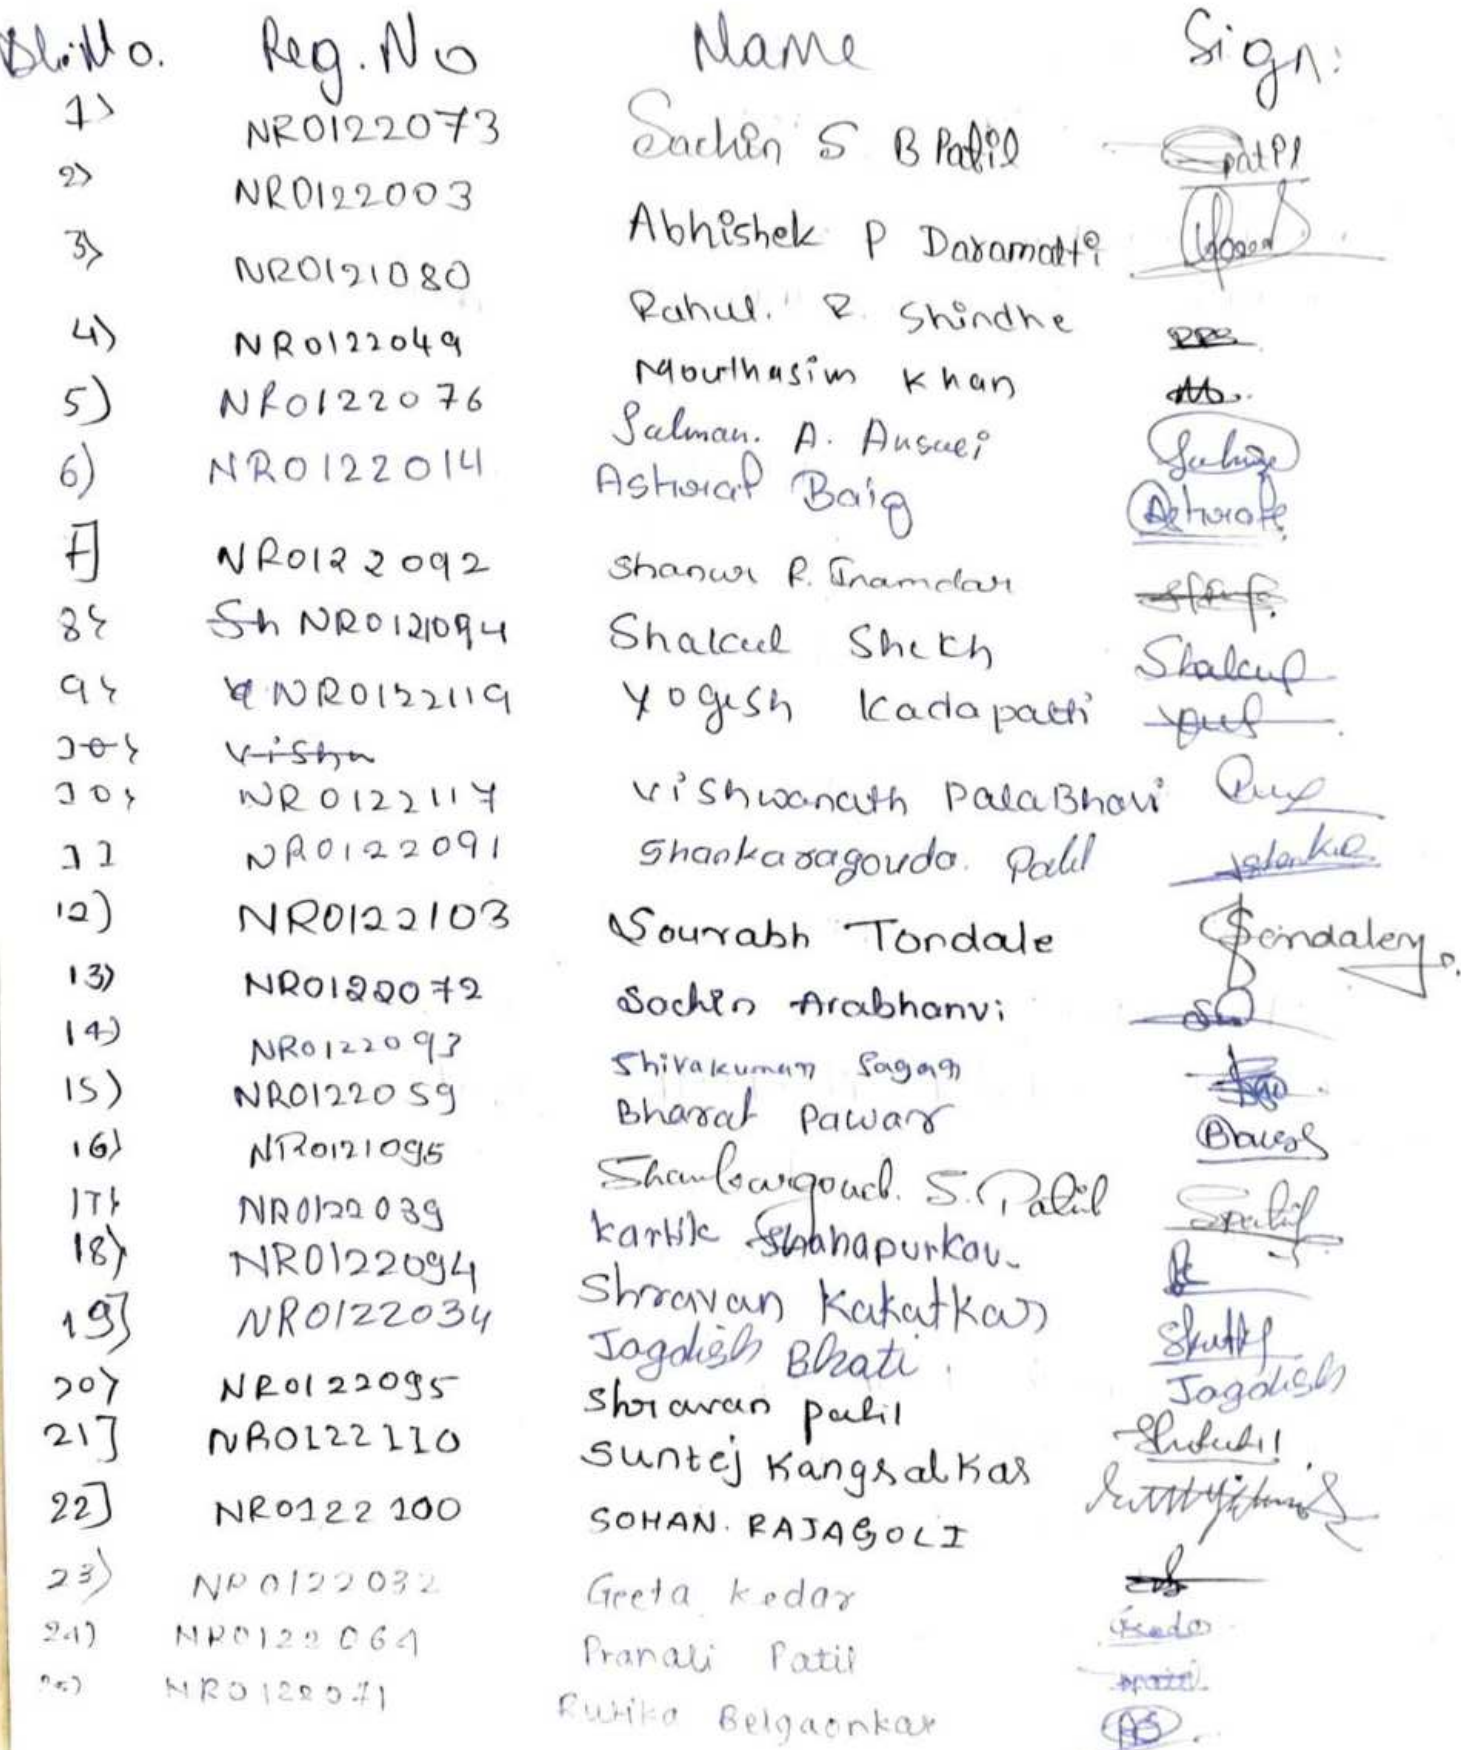 Sl.No. Reg.No Name Sign:
1) NR0122073 Sachin S B Patil
2) NR0122003 Abhishek P Daramatti
3) NR0121080 Rahul. R. Shindhe
4) NR0122049 Mourthasim Khan
5) NR0122076 Salman. A. Ansari
6) NR0122014 Ashraf Baig Ashraf
7] NR0122092 Shanur R. Inamdar
8} Sh NR0121094 Shakeel Shekh Shakeel
9} NR0122119 Yogesh Kadapatti
10} Vishu
10} NR0122117 Vishwanath PalaBhavi
11 NR0122091 Shankaragouda. Patil
12) NR0122103 Sourabh Tondale
13) NR0122072 Sachin Arabhanvi
14) NR0122093 Shivakumar Sagar
15) NR0122059 Bharat Pawar
16) NR0121095 Shankargoud. S. Patil
17} NR0122039 Kartik Shahapurkar
18) NR0122094 Shravan Kakatkar
19] NR0122034 Jagdish Bhati Jagdish
20) NR0122095 Shravan patil
21] NR0122110 Suntej Kangralkar
22] NR0122100 SOHAN. RAJAGOLI
23) NR0122032 Geeta Kedar
24) NR0122064 Pranali Patil
25) NR0122071 Rutika Belgaonkar